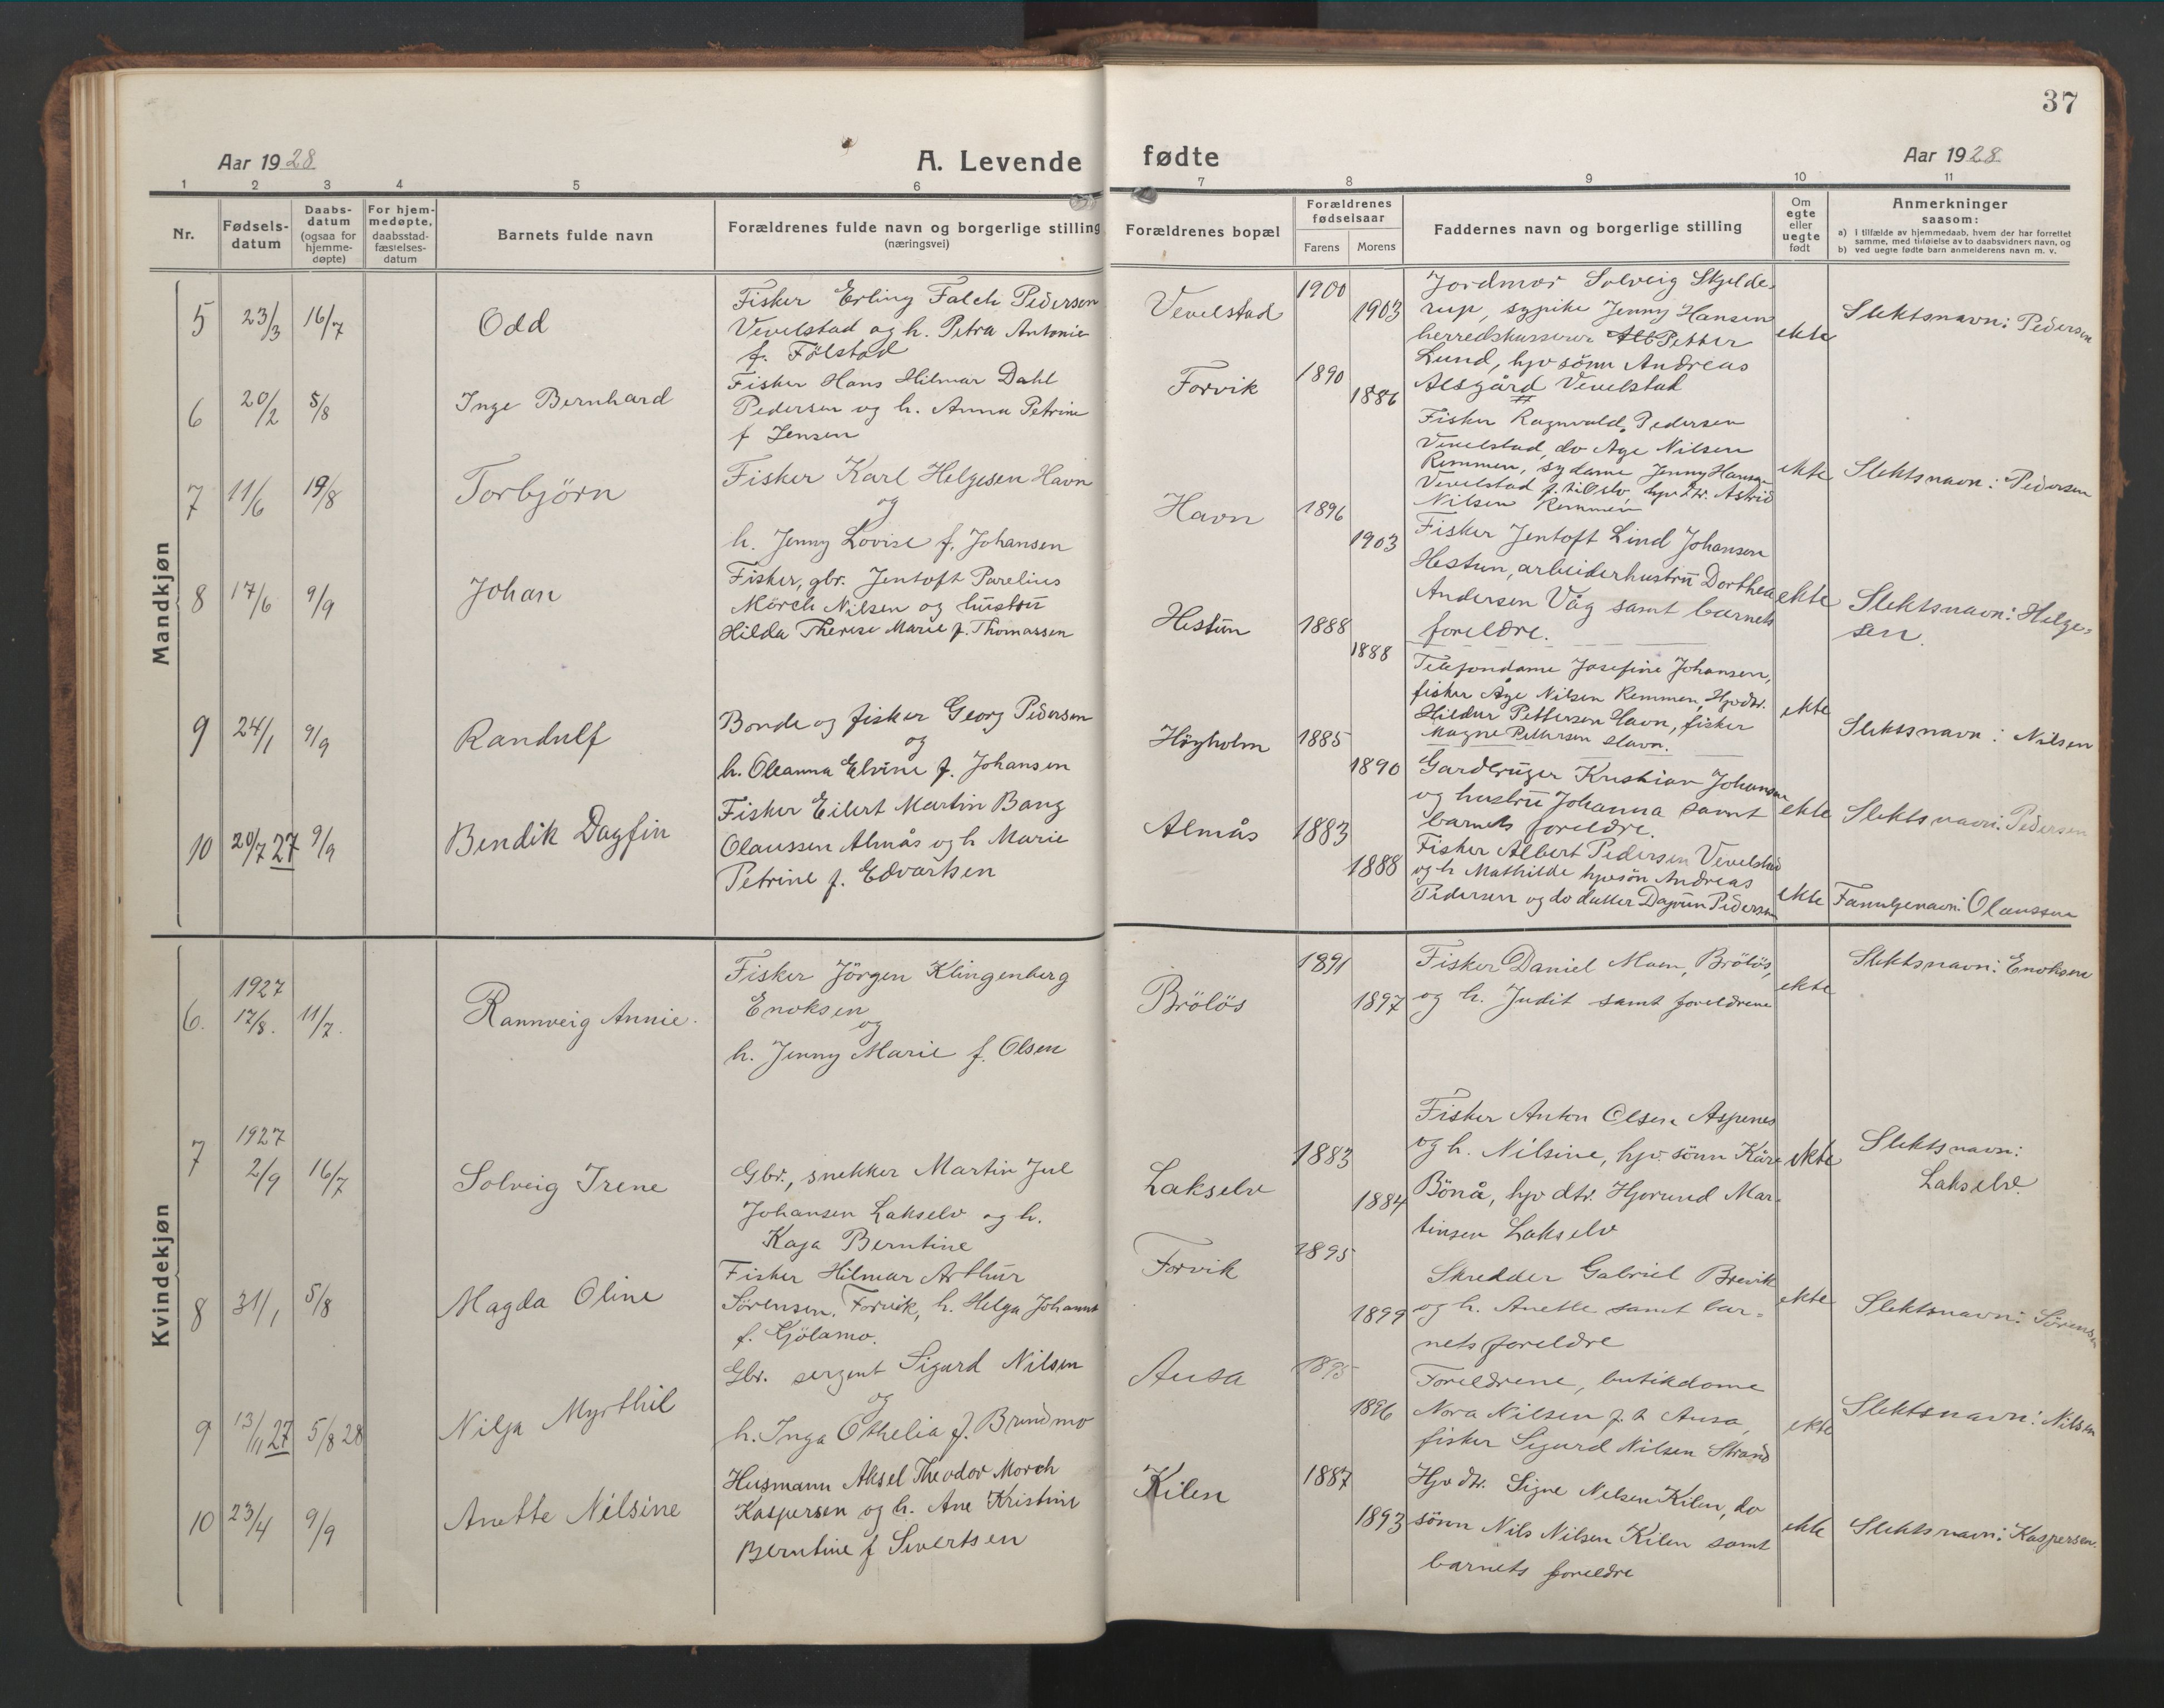 37
Aar 1928
A. Levende fødte
Aar 1928
1 2 3 4 5 6 7 8 9 10 11
Nr.
Fødsels-
datum
Daabs-
datum
(ogsaa for
hjemme-
døpte)
For hjem-
medøpte,
daabsstad-
fæstelses-
datum
Barnets fulde navn
Forældrenes fulde navn og borgerlige stilling
(næringsvei)
Forældrenes bopæl
Forældrenes
fødselsaar
Farens Morens
Faddernes navn og borgerlige stilling
Om
egte
eller
uegte
født
Anmerkninger
saasom:
a) i tilfælde av hjemmedaab, hvem der har forrettet
samme, med tilføielse av to daabsvidners navn, og
b) ved uegte fødte barn anmelderens navn m. v.
Mandkjøn
5 23/3 16/7 Odd
Fisker Erling Falch Pedersen
Vevelstad og h. Petra Antonie
f. Fölstad
Vevelstad 1900 1903
Jordmor Solveig Skjelde-
rup, sypike Jenny Hansen
herredskasserer Petter
Lund, hjv sönn Andreas
Alsgård Vevelstad
ekte
Slektsnavn: Pedersen
6 20/2 5/8 Inge Bernhard
Fisker Hans Hilmar Dahl
Pedersen og h. Anna Petrine
f Jensen
Forvik 1890 1886
Fisker Ragnvald Pedersen
Vevelstad, do Age Nilsen
Remmen, sydame Jenny Hansen
Vevelstad f. til Oslo, hjv dtr. Astrid
Nilsen Remmen
ekte
Slektsnavn: Pedersen
7 11/6 19/8 Torbjörn
Fisker Karl Helgesen Havn
og
h. Jenny Lovise f. Johansen
Havn 1896 1903
Fisker Jentoft Lind Johansen
Hestun, arbeiderhustru Dorthea
Andersen Våg samt barnets
foreldre.
ekte
Slektsnavn: Helge-
sen.
8 17/6 9/9 Johan
Fisker, gbr. Jentoft Parelius
Mörch Nilsen og hustru
Hilda Therese Marie f. Thomassen
Hestun 1888 1888
Telefondame Josefine Johansen,
fisker Åge Nilsen Remmen, Hjvdtr.
Hildur Pettersen Havn, fisker
Magne Pettersen Havn.
ekte
Slektsnavn: Nilsen
9 24/1 9/9 Randulf
Bonde og fisker Georg Pedersen
og
h. Oleanna Elvine f. Johansen
Höyholm 1885 1890
Gardbruger Kristian Johansen
og hustru Johanna samt
barnets foreldre.
ekte
Slektsnavn: Pedersen
10 20/7 27 9/9 Bendik Dagfin
Fisker Eilert Martin Bang
Olaussen Almås og h Marie
Petrine f. Edvartsen
Almås 1883 1888
Fisker Albert Pedersen Vevelstad
og h Mathilde hjvsön Andreas
Pedersen og do datter Dagrun Pedersen
ekte
Familjenavn: Olaussen
Kvindekjøn
6. 1927
17/8. 11/7. Rannveig Annie.
Fisker Jörgen Klingenberg
Enoksen
og
h. Jenny Marie f. Olsen
Brölös 1891 1897
Fisker Daniel Moen, Brölös,
og h. Judit samt foreldrene
ekte
Slektsnavn: Enoksen
7 1927
2/9 16/7 Solveig Irene
Gbr., snekker Martin Jul
Johansen Lakselv og h.
Kaja Berntine
Lakselv 1883 1884
Fisker Anton Olsen Aspenes
og h. Nilsine, hjv. sönn Kåre
Bönå, hjv dtr. Hjorund Mar-
tinsen Lakselv
ekte
Slektsnavn:
Lakselv.
8 31/1 5/8 Magda Oline
Fisker Hilmar Arthur
Sörensen. Forvik, h. Helga Johanne
f. Gjölamo.
Forvik 1895 1899
Skredder Gabriel Brevik
og h. Anette samt bar-
nets foreldre
ekte
Slektsnavn: Sörensen
9 13/11 27 5/8 28 Nilja Myrthil
Gbr. sergent Sigurd Nilsen
og
h. Inga Othelia f. Brundmo
Ausa 1895 1896
Foreldrene, butikdame
Nora Nilsen f. t Ausa,
fisker Sigurd Nilsen Strand
ekte
Slektsnavn: Nilsen
10 23/4 9/9 Anette Nilsine
Husmann Aksel Theodor Morch
Kaspersen og h. Ane Kristine
Berntine f Sivertsen
Kilen 1887 1893
Hjv dtr. Signe Nilsen Kilen, do
sönn Nils Nilsen Kilen samt
barnets foreldre
ekte
Slektsnavn: Kaspersen.